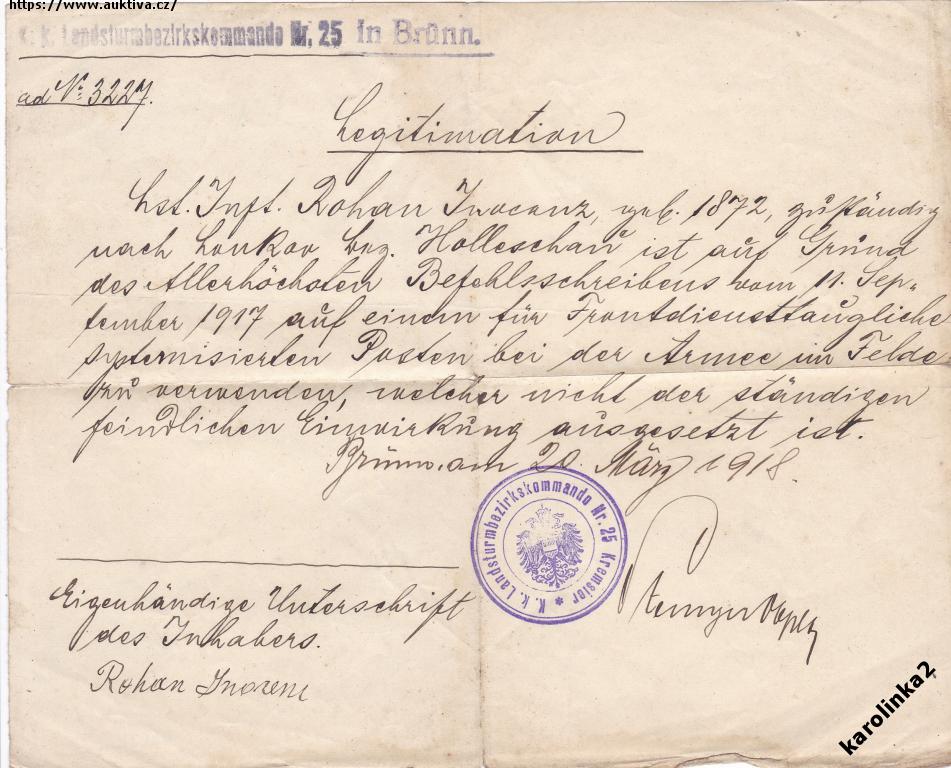 https://www.auktiva.cz/
K. k. Landsturmbezirkskommando Nr. 25 in Brünn.
ad No: 3227.
Legitimation
Lst. Inft. Rohan Inocenz, geb. 1872, zuständig
nach Loukov bez. Holleschau ist auf Grund
des Allerhöchsten Befehlsschreibens vom 11. Sep-
tember 1917 auf einem für Frontdiensttaugliche
systemisierten Posten bei der Armee im Felde
zu verwenden, welcher nicht der ständigen
feindlichen Einwirkung ausgesetzt ist.
Brünn, am 20. März 1918.
K. k. Landsturmbezirkskommando Nr. 25 Kremsier *
Eigenhändige Unterschrift
des Inhabers.
Rohan
karolinka2